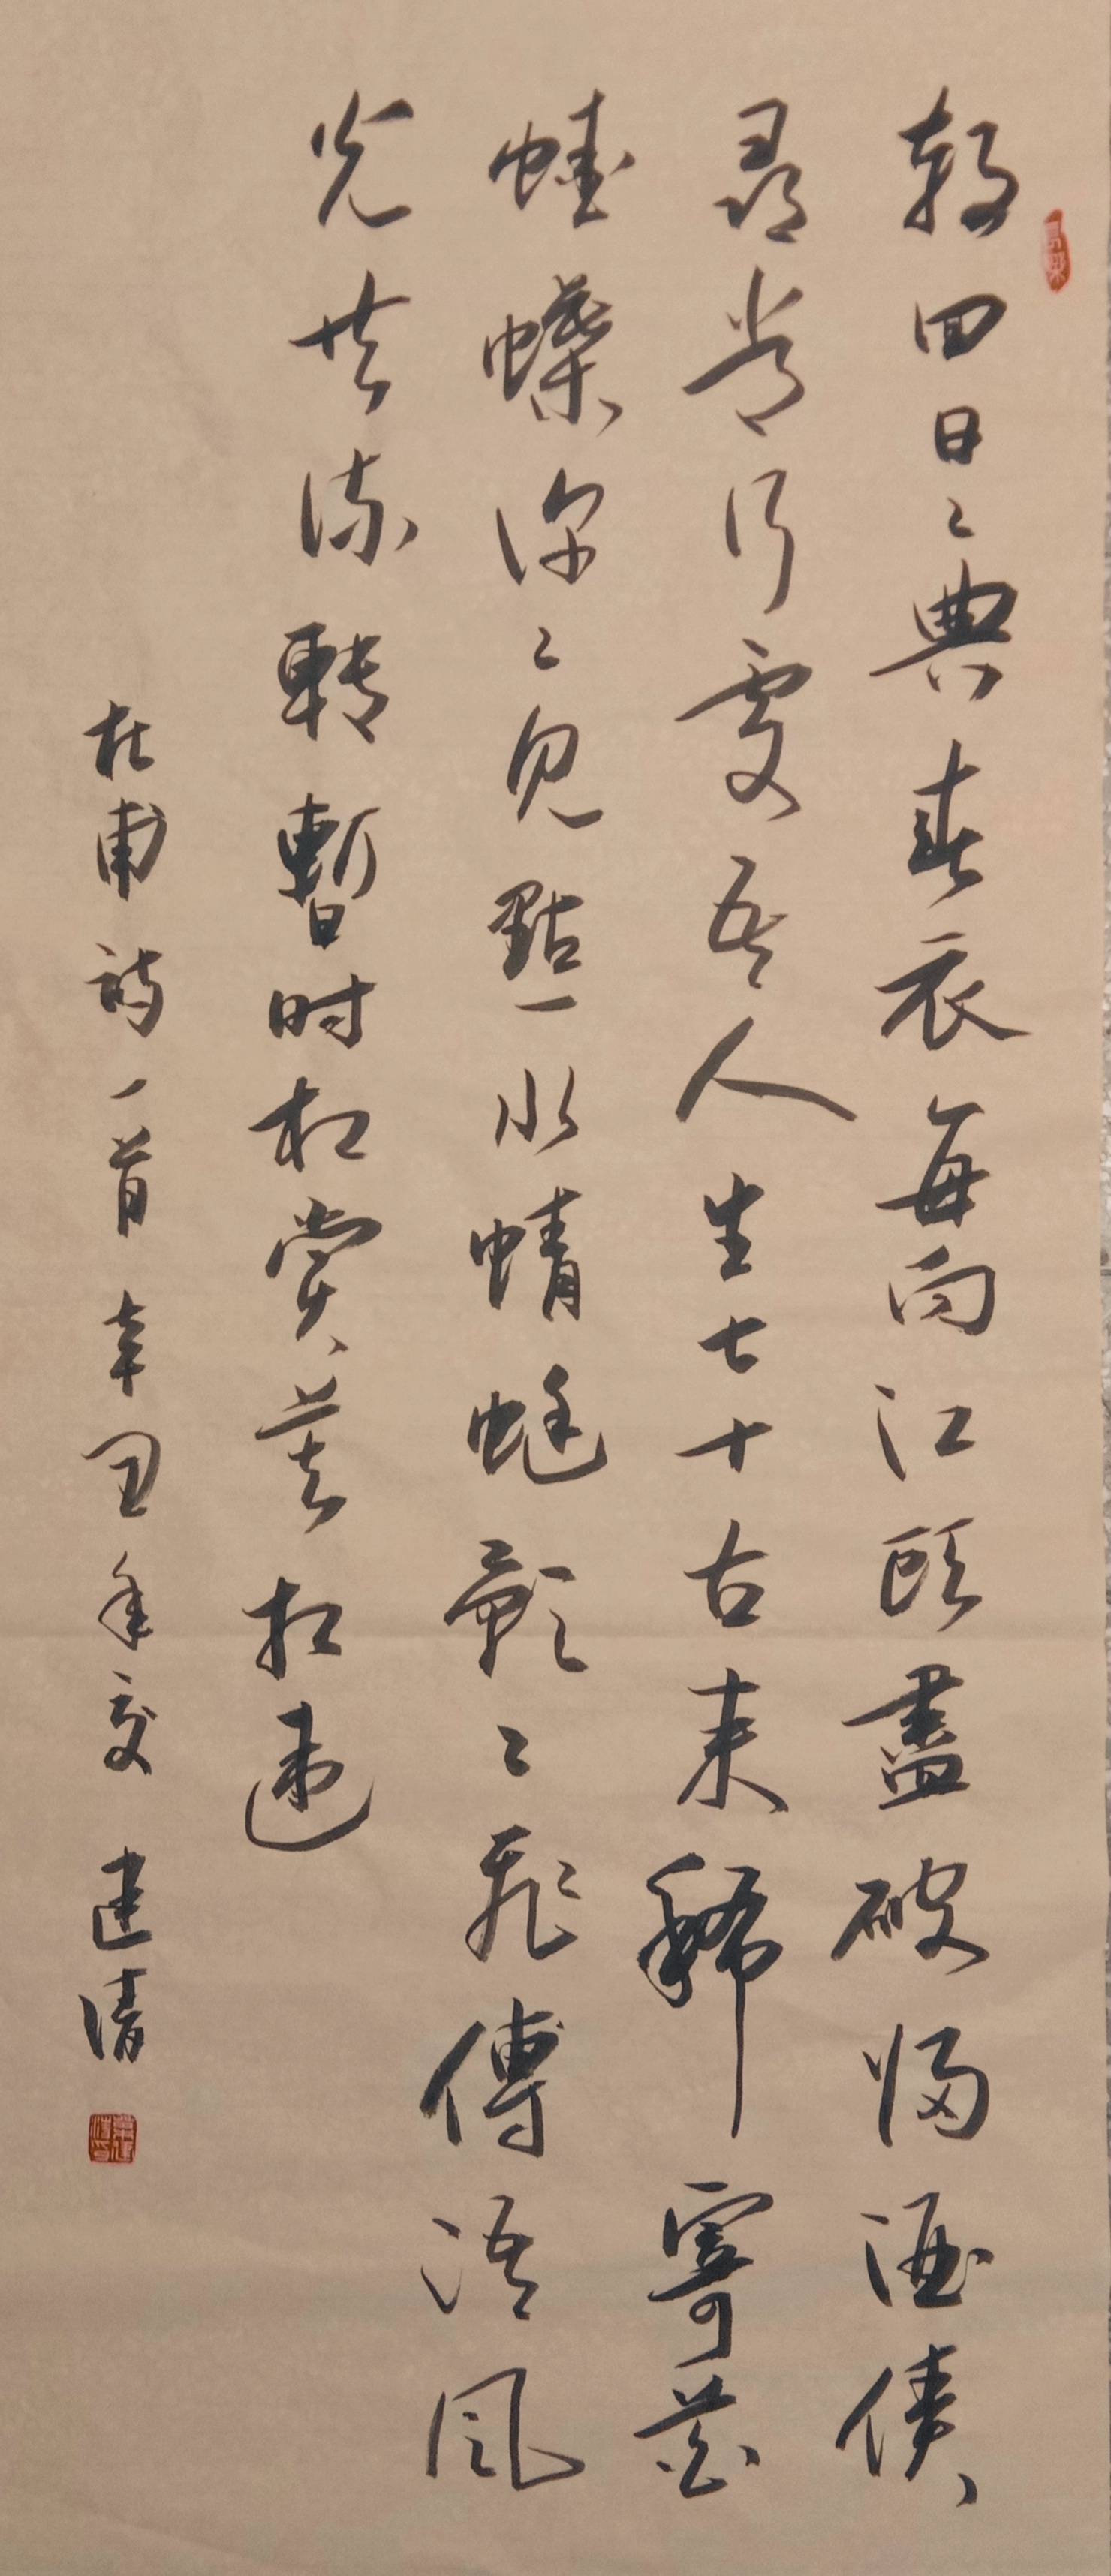 朝回日〻典春衣每向江頭盡醉歸酒債
尋常行處有人生七十古来稀穿花
蛺蝶深〻見點水蜻蜓款〻飛傳語風
光共流轉暫时相賞莫相違
杜甫詩一首辛丑年夏建清